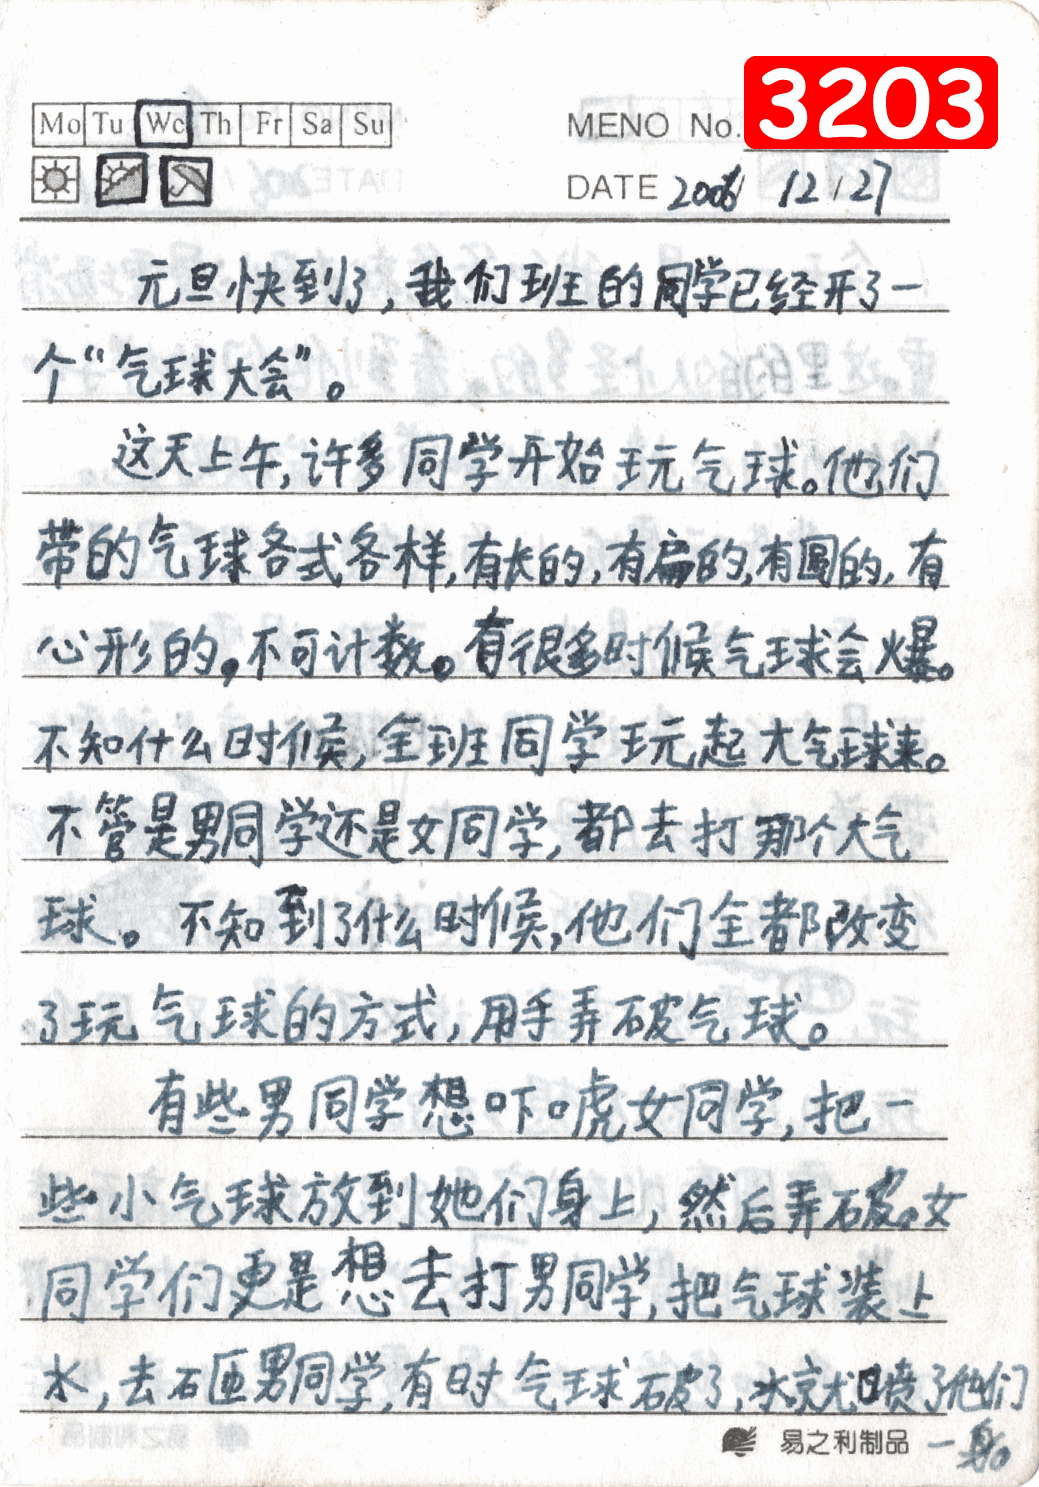 3203
Mo Tu We Th Fr Sa Su
MENO No.
DATE 2006/12/27
元旦快到了，我们班的同学已经开了一
个“气球大会”。
这天上午，许多同学开始玩气球。他们
带的气球各式各样，有长的，有扁的，有圆的，有
心形的，不可计数。有很多时候气球会爆。
不知什么时候，全班同学玩起大气球来。
不管是男同学还是女同学，都去打那个大气
球。不知到了什么时候，他们全都改变
了玩气球的方式，用手弄破气球。
有些男同学想吓唬女同学，把一
些小气球放到她们身上，然后弄破。女
同学们更是想去打男同学，把气球装上
水，去砸男同学，有时气球破了，水就喷了他们
一身。
易之利制品